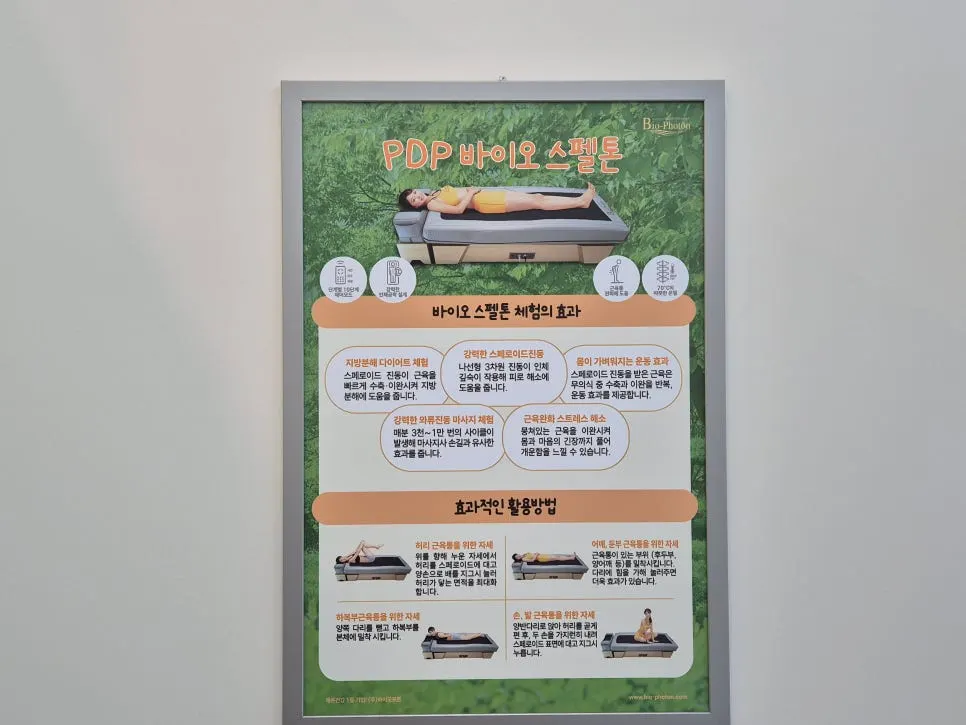 Bio-Photon
PDP 바이오 스펠톤
단계별 10단계
제어모드
강력한
인체공학 설계
근육통
완화에 도움
70℃의
따뜻한 온열
바이오 스펠톤 체험의 효과
지방분해 다이어트 체험
스페로이드 진동이 근육을
빠르게 수축·이완시켜 지방
분해에 도움을 줍니다.
강력한 스페로이드진동
나선형 3차원 진동이 인체
깊숙이 작용해 피로 해소에
도움을 줍니다.
몸이 가벼워지는 운동 효과
스페로이드 진동을 받은 근육은
무의식 중 수축과 이완을 반복,
운동 효과를 제공합니다.
강력한 와류진동 마사지 체험
매분 3천~1만 번의 사이클이
발생해 마사지사 손길과 유사한
효과를 줍니다.
근육완화 스트레스 해소
뭉쳐있는 근육을 이완시켜
몸과 마음의 긴장까지 풀어
개운함을 느낄 수 있습니다.
효과적인 활용방법
허리 근육통을 위한 자세
위를 향해 누운 자세에서
허리를 스페로이드에 대고
양손으로 배를 지그시 눌러
허리가 닿는 면적을 최대화
합니다.
어깨, 둔부 근육통을 위한 자세
근육통이 있는 부위 (후두부,
양어깨 등)를 밀착시킵니다.
다리에 힘을 가해 눌러주면
더욱 효과가 있습니다.
하복부근육통을 위한 자세
양쪽 다리를 뻗고 하복부를
본체에 밀착 시킵니다.
손, 발 근육통을 위한 자세
양반다리로 앉아 허리를 곧게
편 후, 두 손을 가지런히 내려
스페로이드 표면에 대고 지그시
누릅니다.
www.bio-photon.com